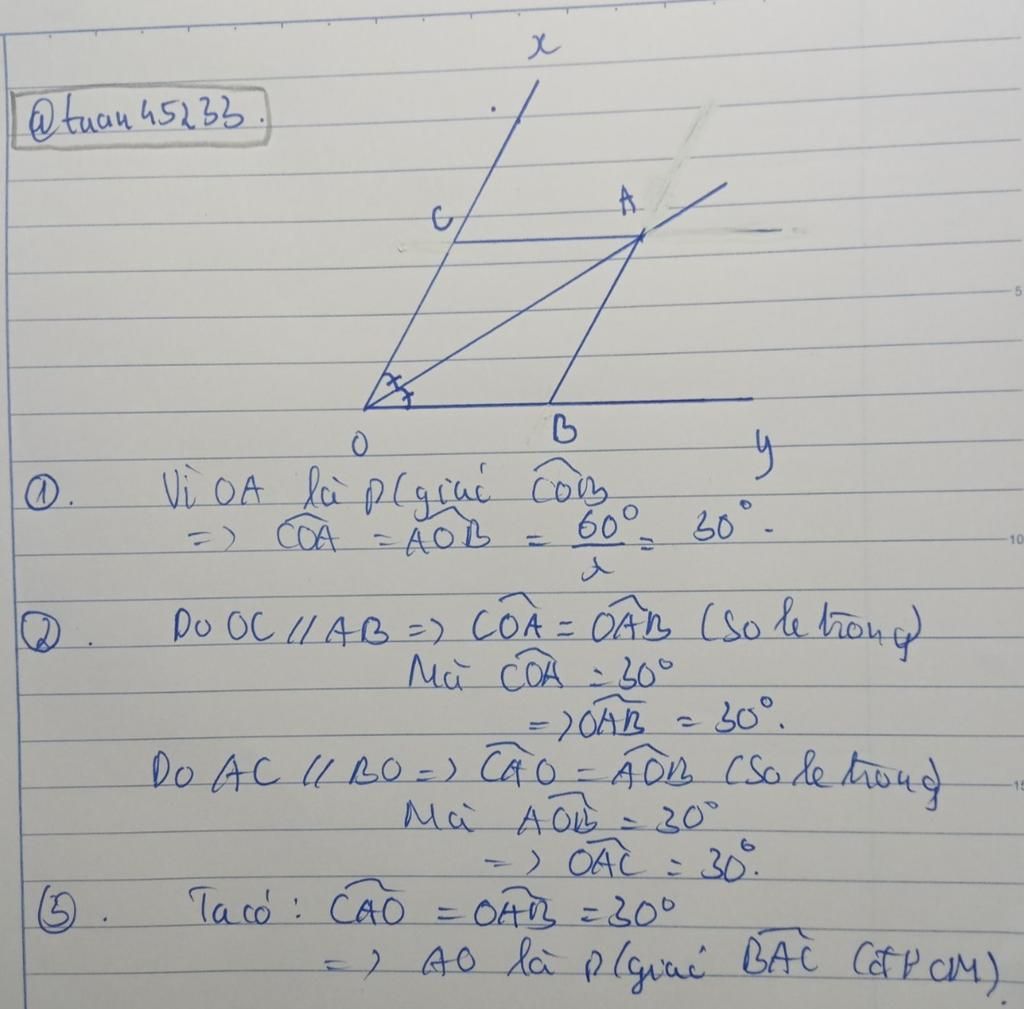 x
@tuan45233.
C
A
5
O
B
y
①. Vì OA là p/giác \widehat{COB}
=> \widehat{COA} = \widehat{AOB} = \frac{60°}{2} = 30°.
10
②. Do OC // AB => \widehat{COA} = \widehat{OAB} (so le trong)
Mà \widehat{COA} = 30°
=> \widehat{OAB} = 30°.
Do AC // BO => \widehat{CAO} = \widehat{AOB} (so le trong)
15
Mà \widehat{AOB} = 30°
=> \widehat{OAC} = 30°.
③. Ta có: \widehat{CAO} = \widehat{OAB} = 30°
=> AO là p/giác \widehat{BAC} (đPCM).